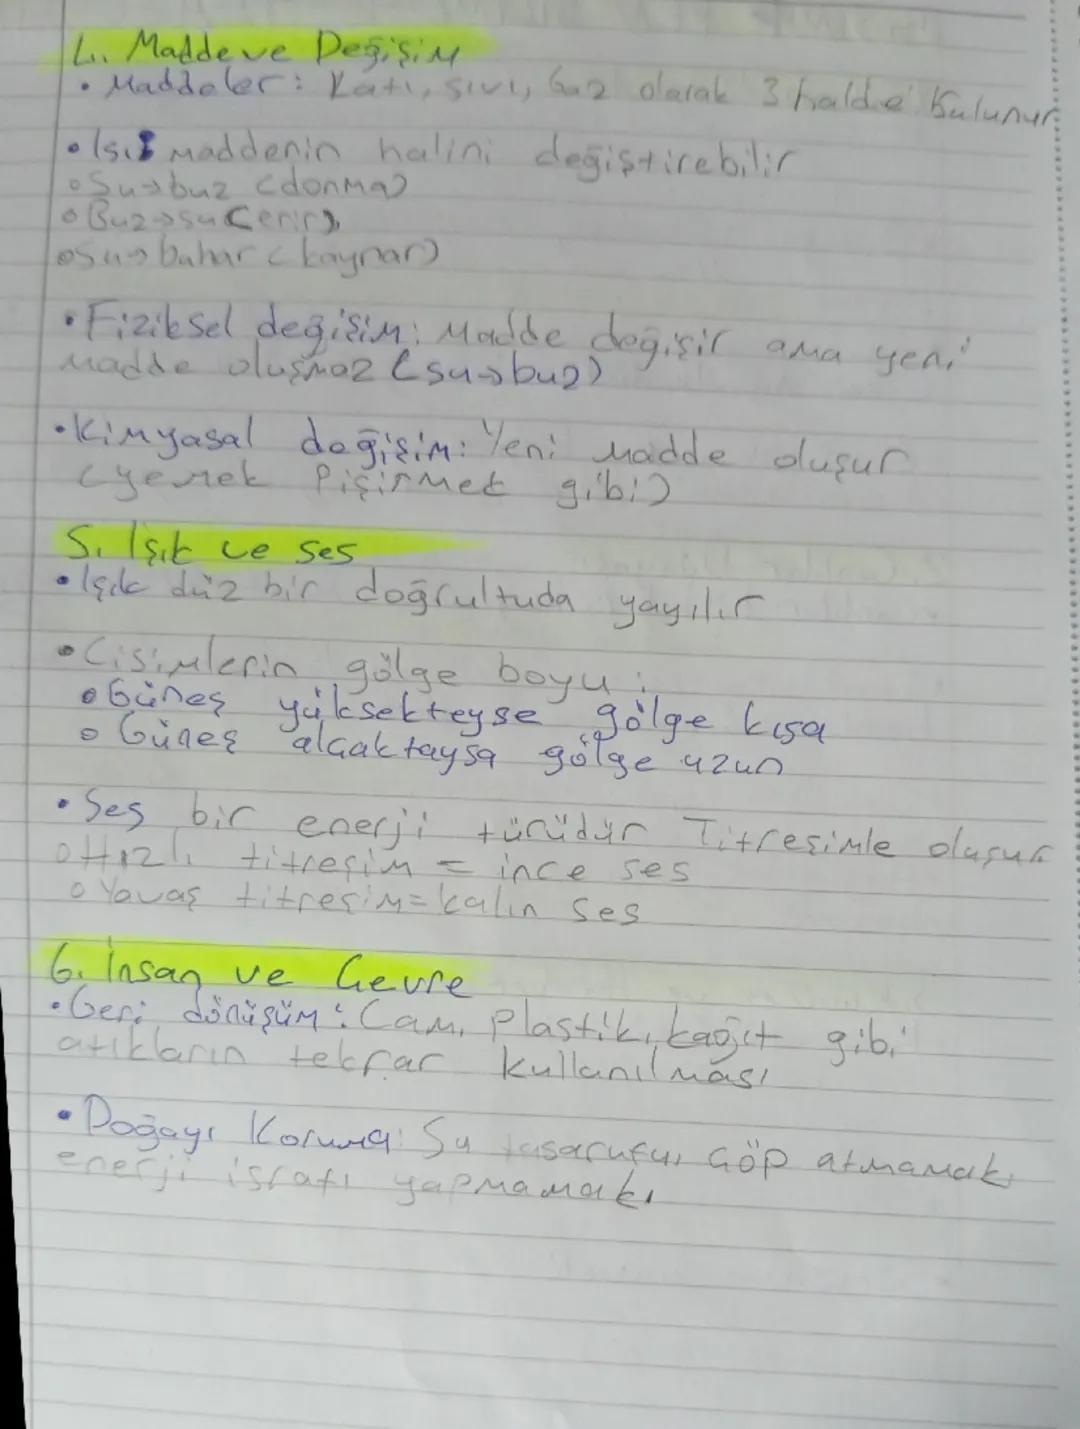 4. Madde ve Değişim
• Maddeler: Katı, sıvı, Gaz olarak 3 halde bulunur.
• Isı maddenin halini değiştirebilir
∘ Su→buz (donma)
∘ Buz→su (erir),
∘ Su→buhar (kaynar)
• Fiziksel değişim: Madde değişir ama yeni
madde oluşmaz (su→buz)
• Kimyasal değişim: Yeni madde oluşur
(yemek Pişirmek gibi)
5. Işık ve ses
• Işık düz bir doğrultuda yayılır
• Cisimlerin gölge boyu:
∘ Güneş yüksekteyse gölge kısa
∘ Güneş alçaktaysa gölge uzun
• Ses bir enerji türüdür Titreşimle oluşur
∘ Hızlı titreşim = ince ses
∘ Yavaş titreşim = kalın ses
6. İnsan ve Çevre
• Geri dönüşüm: Cam, Plastik, kağıt gibi
atıkların tekrar kullanılması
• Doğayı Koruma: Su tasarufu, Göp atmamak,
enerji israfı yapmamak.